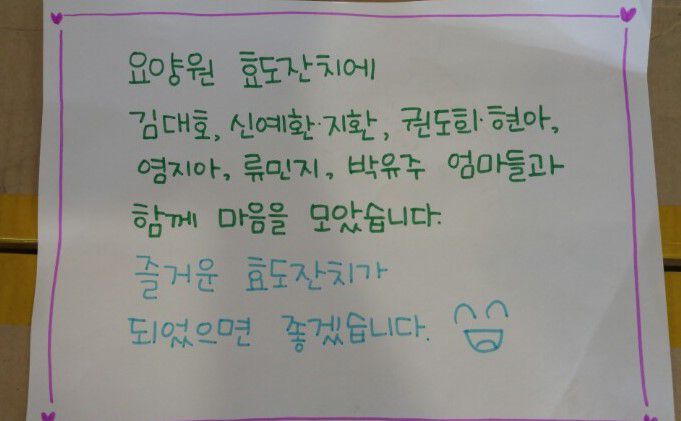 요양원 효도잔치에
김대호, 신예환·지환, 권도희·현아,
염지아, 류민지, 박유주 엄마들과
함께 마음을 모았습니다.
즐거운 효도잔치가
되었으면 좋겠습니다.